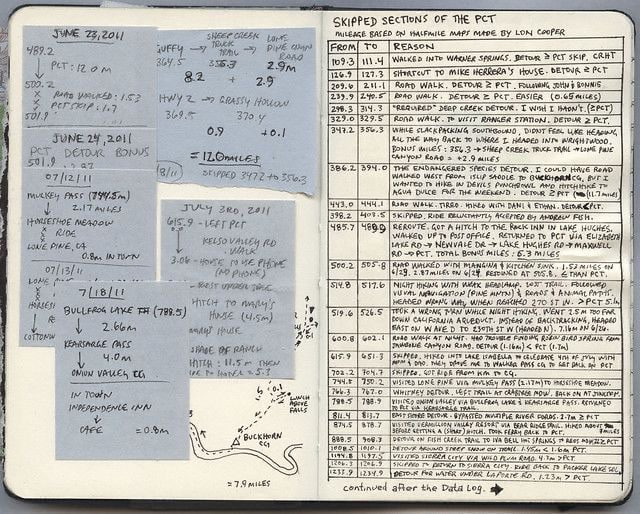 JUNE 23, 2011
489.2
PCT: 12.0 m
500.2
ROAD WALKED: 1.53
PCT SKIP: 1.7
501.9
JUNE 24, 2011
PCT DETOUR BONUS
501.9
07/12/11
MUCKEY PASS (744.5m)
2.17 MILES
HORSESHOE MEADOW
RIDE
LONE PINE, CA
0.8m IN TOWN
07/13/11
LONE
HORSES
COTTON
7/18/11
BULLFROG LAKE (788.5)
2.66m
KEARSARGE PASS
4.0m
ONION VALLEY CG
IN TOWN
INDEPENDENCE INN
CAFE = 0.8m
SHEEP CREEK TRUCK TRAIL
LONE PINE CANYON ROAD
GUFFY
364.5 356.3 2.9m
8.2 + 2.9
HWY 2 → GRASSY HOLLOW
369.5 370.4
0.9 +0.1
= 12.0 MILES
SKIPPED 347.2 TO 356.3
JULY 3RD, 2011
615.9 - LEFT PCT
KELSO VALLEY RD
WALK
3.06 - HOUSE TO USE PHONE
(NO PHONE)
HITCH TO MARY'S
HOUSE (4.5m)
MARY'S HOUSE
HITCH: 11.5m THEN
= 5.3
0.1
LUNCH ABOVE FALLS
BUCKHORN CG
= 7.9 MILES
SKIPPED SECTIONS OF THE PCT
MILEAGE BASED ON HALFMILE MAPS MADE BY LON COOPER
FROM TO REASON
109.3 111.4 WALKED INTO WARNER SPRINGS. DETOUR ≥ PCT SKIP. CRHT
126.9 127.3 SHORTCUT TO MIKE HERRERA'S HOUSE. DETOUR ≥ PCT
209.6 211.1 ROAD WALK. DETOUR ≥ PCT. FOLLOWING JOHN & BONNIE
239.9 240.5 ROAD WALK. DETOUR ≥ PCT. EASIER (0.65 MILES)
298.3 314.3 "REQUIRED" DEEP CREEK DETOUR. I WISH I HADN'T. (≥PCT)
329.0 329.5 ROAD WALK. TO VISIT RANGER STATION. DETOUR ≥ PCT.
347.2 356.3 WHILE SLACKPACKING SOUTHBOUND, DIDNT FEEL LIKE HEADING
ALL THE WAY BACK TO WHERE I HEADED INTO WRIGHTWOOD.
BONUS MILES: 356.3 → SHEEP CREEK TRUCK TRAIL → LONE PINE
CANYON ROAD = +2.9 MILES
386.2 394.0 THE ENDANGERED SPECIES DETOUR. I COULD HAVE ROAD
WALKED WEST FROM ISLIP SADDLE TO BUCKHORN CG, BUT I
WANTED TO HIKE IN DEVILS PUNCHBOWL AND HITCHHIKE TO
AGUA DULCE FOR THE WEEKEND. DETOUR ≥ PCT (11.7 MILES)
443.0 444.1 ROAD WALK. TIRED. HIKED WITH DAN & ETHAN. DETOUR<PCT.
398.2 403.5 SKIPPED, RIDE RELUCTANTLY ACCEPTED BY ANDREW FISH.
485.7 REROUTE. GOT A HITCH TO THE ROCK INN IN LAKE HUGHES,
WALKED UP TO POST OFFICE. RETURNED TO PCT VIA ELIZABETH
LAKE RD → NEWVALE DR → LAKE HUGHES RD → MAXWELL
RD → PCT. TOTAL BONUS MILES: 5.3 MILES
500.2 505.8 ROAD WALKED WITH MANGUM & KITCHEN SINK. 1.53 MILES ON
6/23. 2.87 MILES ON 6/24. REJOINED AT 505.8. ≤ THAN PCT.
514.8 517.6 NIGHT HIKING WITH WEAK HEADLAMP. LOST TRAIL. FOLLOWED
VISUAL NAVIGATION (PINE HINT) & ROADS & ANIMAL PATHS.
519.6 526.5 TOOK A WRONG TURN WHILE NIGHT HIKING. WENT 2.5m TOO FAR
DOWN CALIFORNIA AQUEDUCT. INSTEAD OF BACKTRACKING, HEADED
EAST ON W AVE D TO 230TH ST W (HEADED N). 7.16m ON 6/26.
600.8 602.1 ROAD WALK AT NIGHT. HAD TROUBLE FINDING ROBIN BIRD SPRING FROM
JAWBONE CANYON ROAD. DETOUR (1.6m) < PCT (1.7m)
615.9 651.3 SKIPPED, HIKED INTO LAKE ISABELLA TO CELEBRATE 4TH OF JULY WITH
702.2 704.7 SKIPPED, GOT RIDE FROM KM TO CG.
744.5 750.2 VISITED LONE PINE VIA MUCKEY PASS (2.17m) TO HORSESHOE MEADOW.
766.3 767.0 WHITNEY DETOUR. LEFT TRAIL AT CRABTREE MDW. BACK ON AT JUNCTION.
788.5 788.9 VISITED ONION VALLEY VIA BULLFROG LAKE & KEARSARGE PASS. RETURNED
TO PCT VIA KEARSARGE TRAIL.
811.4 813.7 EAST SHORE DETOUR - BYPASSED MULTIPLE RIVER FORDS. 2.7m ≥ PCT
874.5 878.7 VISITED VERMILION VALLEY RESORT VIA BEAR RIDGE TRAIL. HIKED ABOUT 8 MILES
BEFORE GETTING A (SHORT) HITCH. TOOK FERRY BACK TO PCT.
888.5 908.3 DETOUR ON FISH CREEK TRAIL TO IVA BELL HOT SPRINGS TO REDS MEADOW ≥ PCT
1008.5 1010.1 DETOUR AROUND STEEP SNOW ON TRAIL. 1.45m < 1.6m PCT.
1194.8 1197.5 VISITED SIERRA CITY VIA WILD PLUM ROAD. 4.7m > PCT.
1206.3 1206.9 SKIPPED TO RETURN TO SIERRA CITY. RODE BACK TO PACKER LAKE SDL.
1235.9 1239.9 DETOUR FOR WATER UNDER LAPORTE RD. 1.23m > PCT.
continued after the Data Log. →